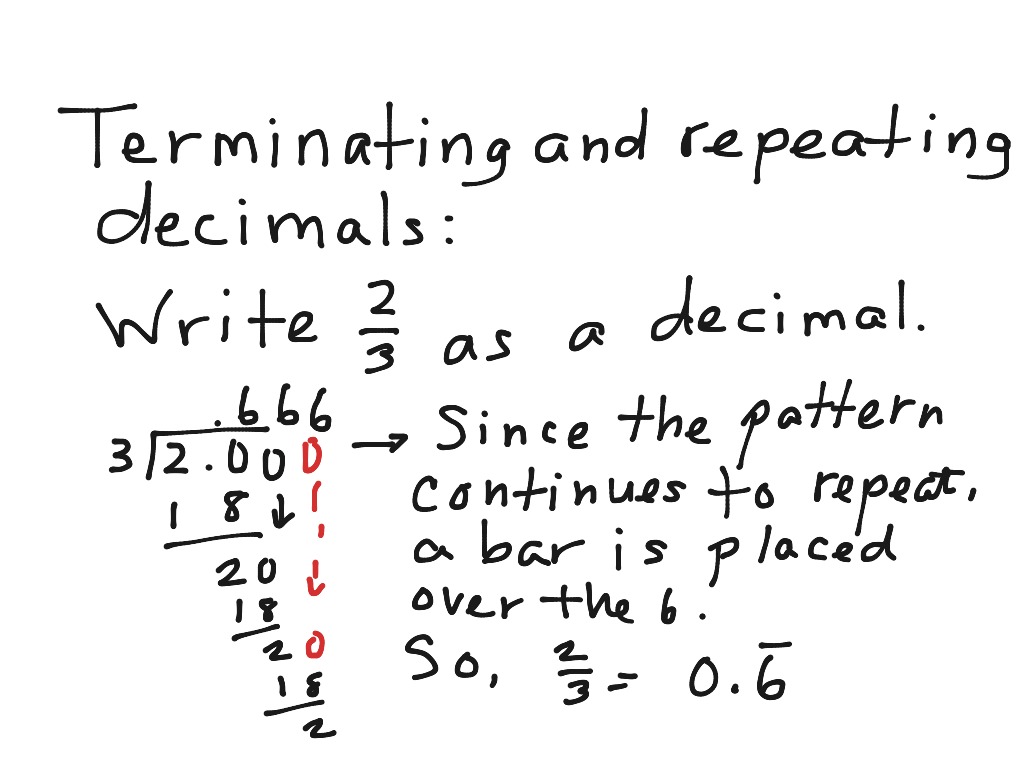 Terminating and repeating
decimals:
Write 2/3 as a decimal.
.666
3)2.000
1 8
20
18
20
18
2
→ Since the pattern
continues to repeat,
a bar is placed
over the 6.
So, 2/3 = 0.6̅